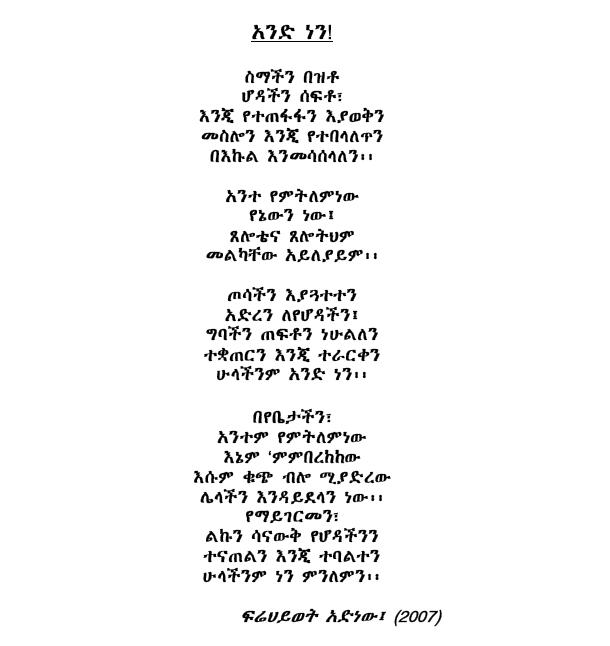 አንድ ነን!
ስማችን በዝቶ
ሆዳችን ሰፍቶ፣
እንጂ የተጠፋፋን እያወቅን
መስሎን እንጂ የተበላለጥን
በእኩል እንመሳሰላለን፡፡
አንተ የምትለምነው
የኔውን ነው፤
ጸሎቴና ጸሎትህም
መልካቸው አይለያይም፡፡
ጦሳችን እያጓተተን
አድረን ለየሆዳችን፤
ግባችን ጠፍቶን ነሁልለን
ተቋጠርን እንጂ ተራርቀን
ሁላችንም አንድ ነን፡፡
በየቤታችን፣
አንተም የምትለምነው
እኔም ‘ምምበረከከው
እሱም ቁጭ ብሎ ሚያድረው
ሌላችን እንዳይደላን ነው፡፡
የማይገርመን፣
ልኩን ሳናውቅ የሆዳችንን
ተናጠልን እንጂ ተባልተን
ሁላችንም ነን ምንለምን፡፡
ፍሬህይወት አድነው፤ (2007)